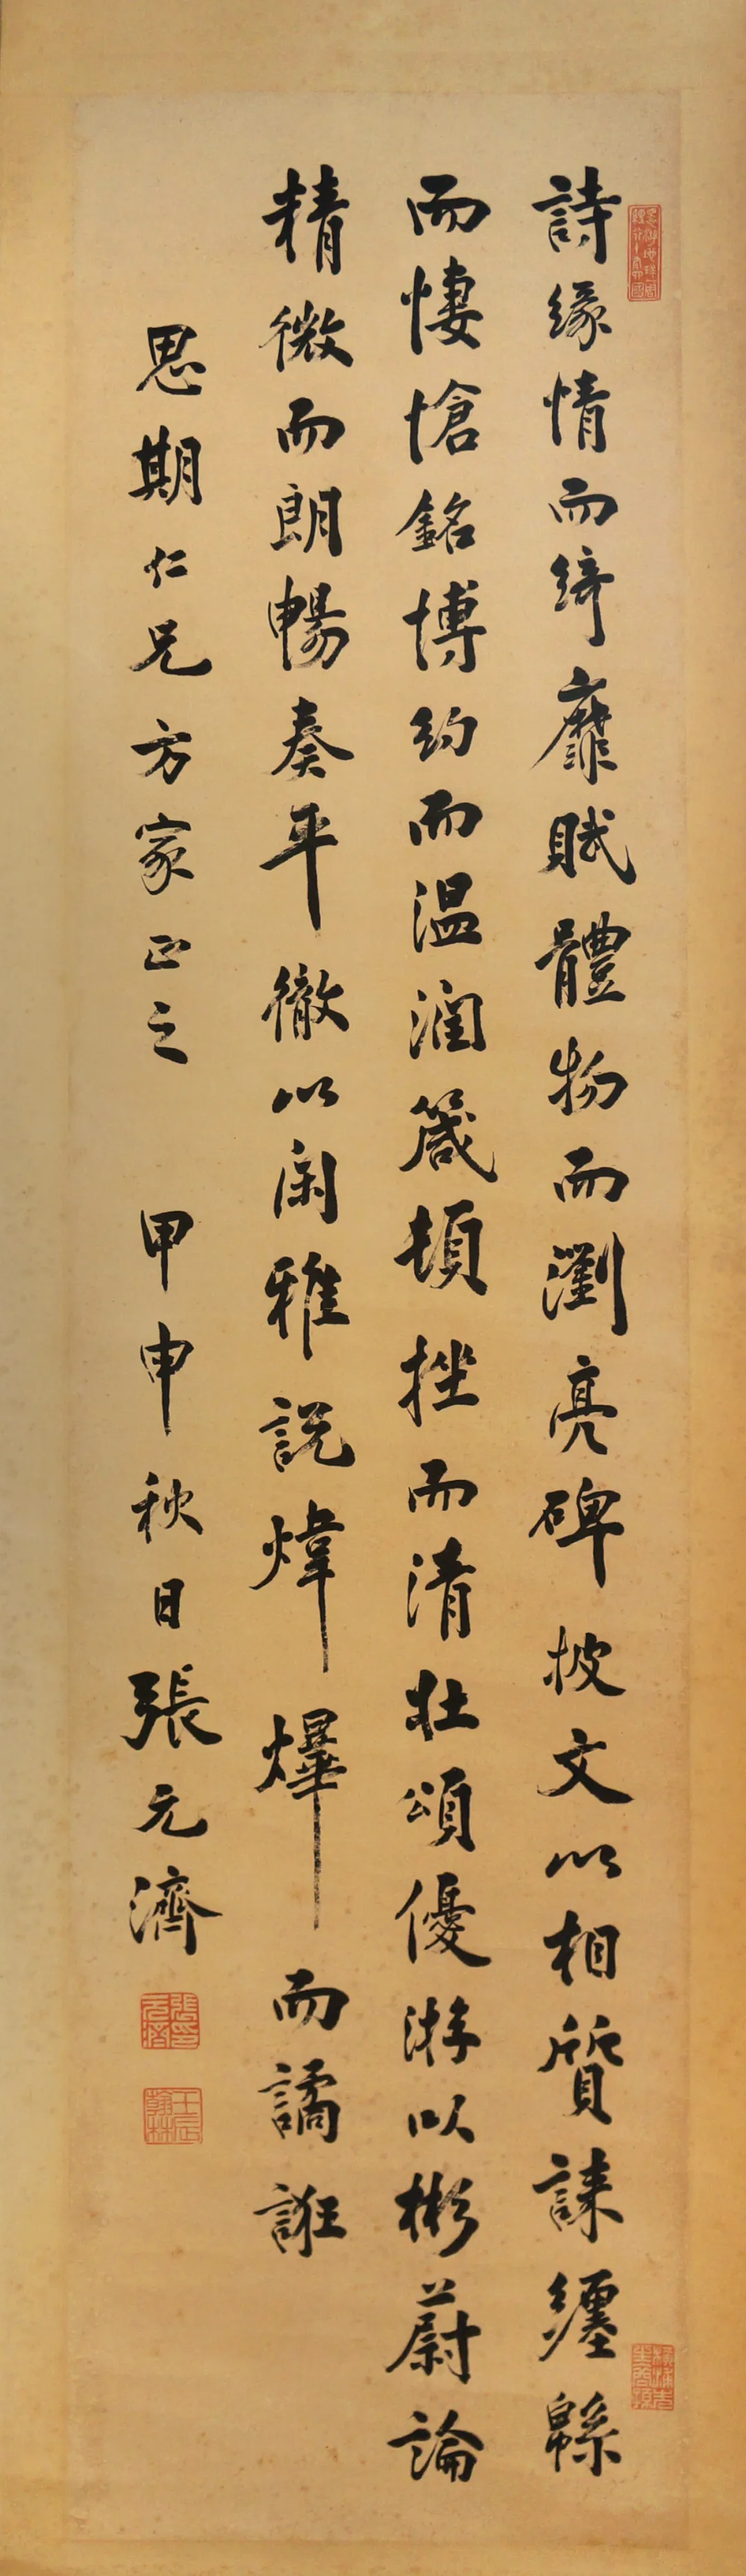 詩緣情而綺靡賦體物而瀏亮碑披文以相質誄纏緜
而悽愴銘博約而温潤箴頓挫而清壯頌優游以彬蔚論
精微而朗暢奏平徹以閑雅説煒燁而譎誑
思期仁兄方家正之 甲申秋日張元濟
張元濟印
壬辰翰林